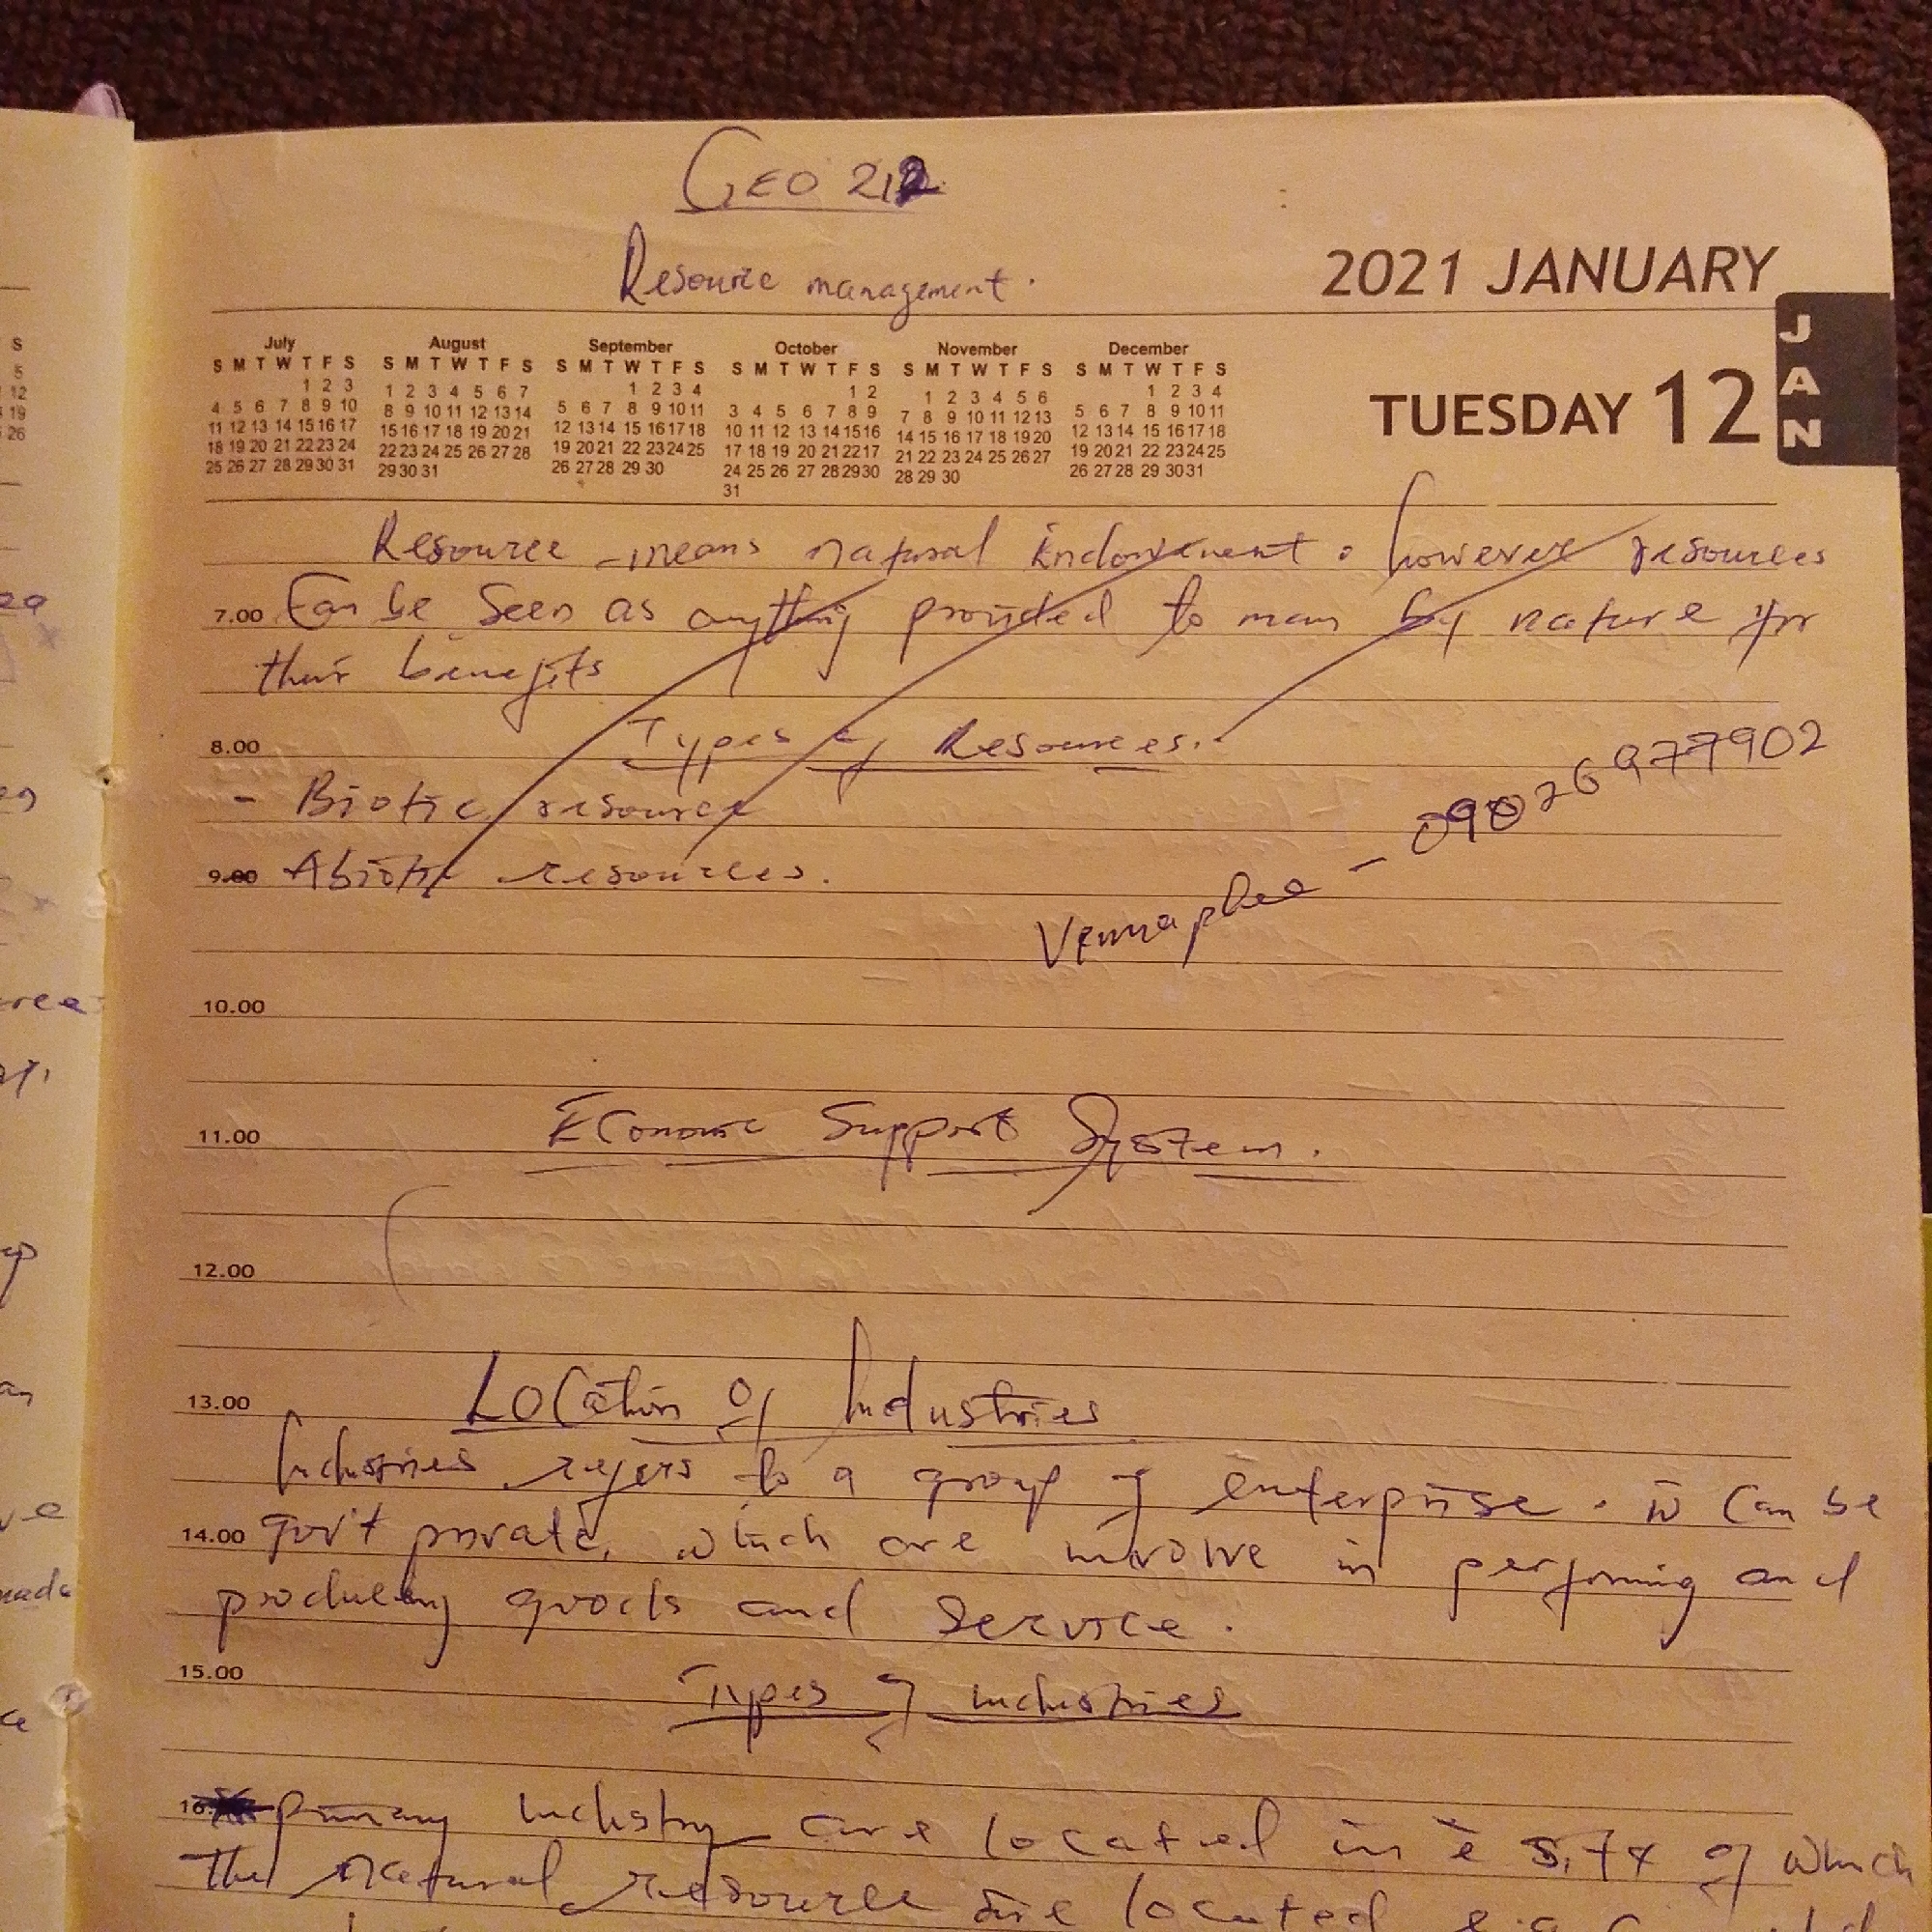 GEO 212
Resource management.
2021 JANUARY
JAN
TUESDAY 12
July August September October November December
S M T W T F S
1 2 3
4 5 6 7 8 9 10
11 12 13 14 15 16 17
18 19 20 21 22 23 24
25 26 27 28 29 30 31
S M T W T F S
1 2 3 4 5 6 7
8 9 10 11 12 13 14
15 16 17 18 19 20 21
22 23 24 25 26 27 28
29 30 31
S M T W T F S
1 2 3 4
5 6 7 8 9 10 11
12 13 14 15 16 17 18
19 20 21 22 23 24 25
26 27 28 29 30
S M T W T F S
1 2
3 4 5 6 7 8 9
10 11 12 13 14 15 16
17 18 19 20 21 22 17
24 25 26 27 28 29 30
31
S M T W T F S
1 2 3 4 5 6
7 8 9 10 11 12 13
14 15 16 17 18 19 20
21 22 23 24 25 26 27
28 29 30
S M T W T F S
1 2 3 4
5 6 7 8 9 10 11
12 13 14 15 16 17 18
19 20 21 22 23 24 25
26 27 28 29 30 31
Resource - means natural Endowment. however resources
7.00 Can be Seen as anything provided to man by nature for
their benefits
8.00 Types of Resources.
- Biotic resource
9.00 Abiotic resources.
10.00
11.00 Economic Support System.
12.00
13.00 Location of Industries
Industries refers to a group of enterprise. it Can be
14.00 gov't private, which are involve in performing and
producing goods and Service.
15.00 Types of industries
16. primary industry are located in e site of which
The Natural resource are located e.g